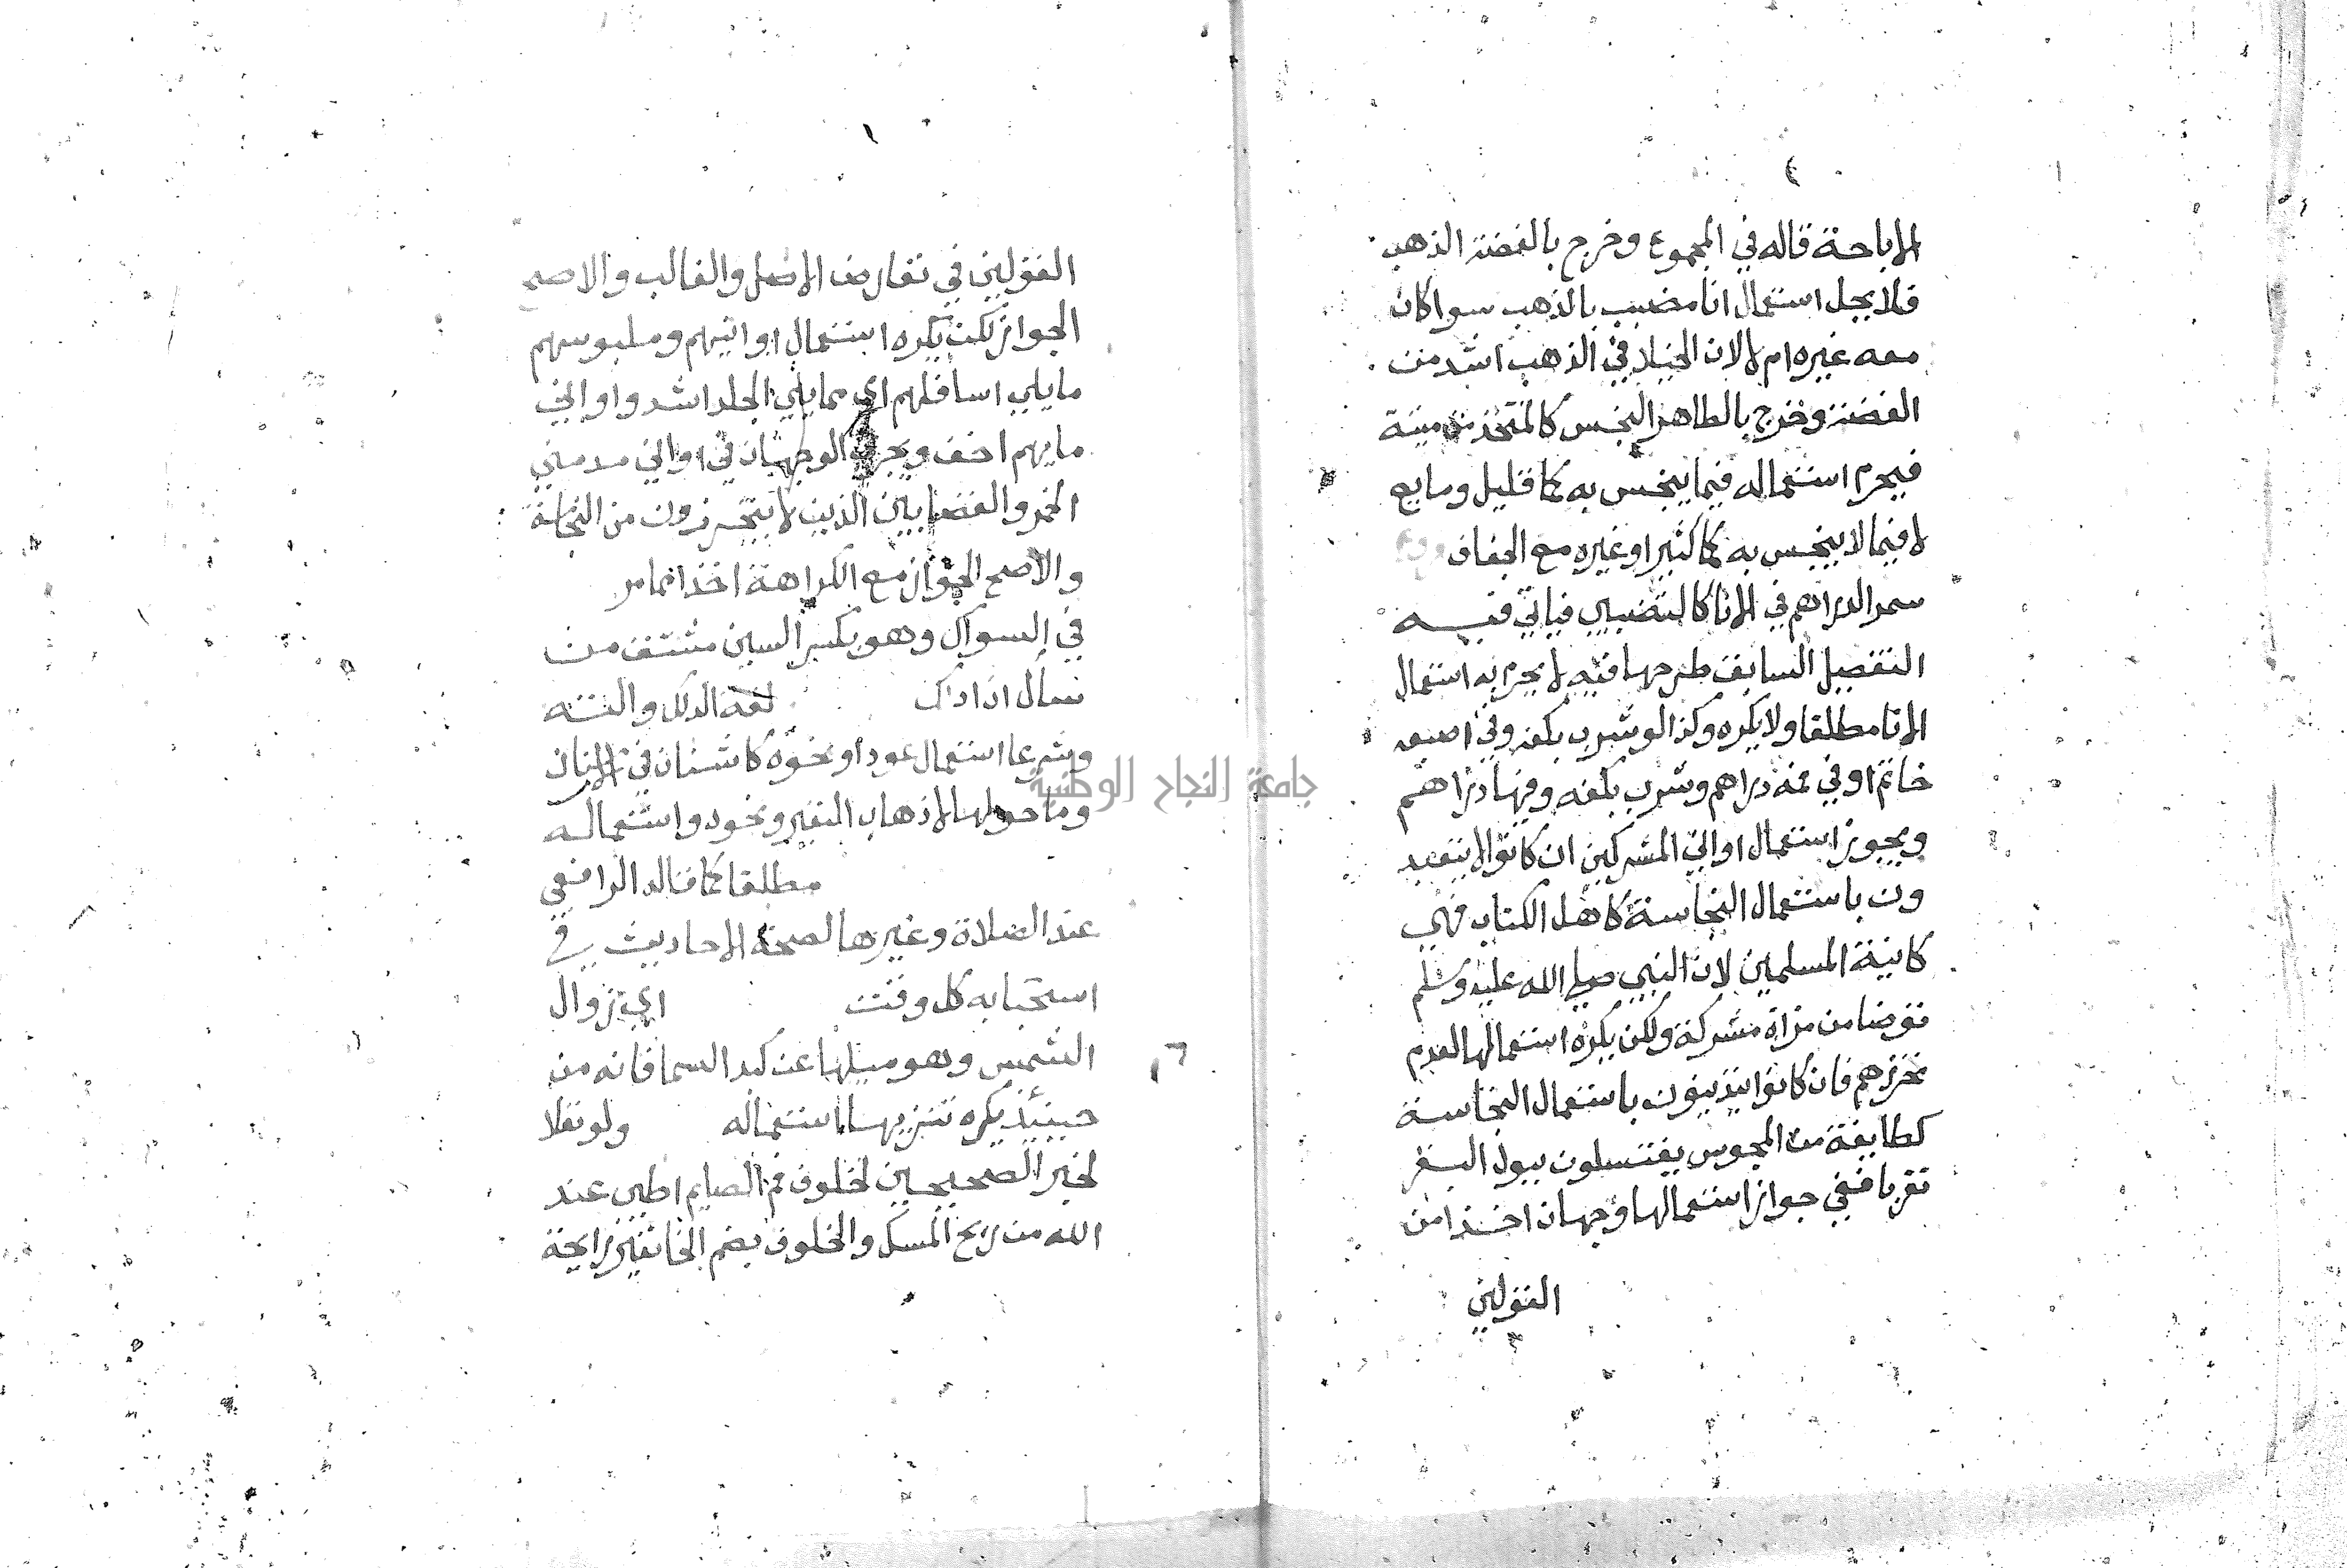 الاباحة قاله في المجموع وخرج بالفضة الذهب
فلا يحل استعمال انا مضبب بالذهب سوا كان
معه غيره ام لا لان الخيلا في الذهب اشد من
الفضة وخرج بالطاهر النجس كالمتخذ من ميتة
فيحرم استعماله فيما ينجس به كما قليل ومايع
لا فيما لا ينجس به كما كثير او غيره مع الجفاف
سمر الدراهم في الانا كالتضبيب فياتي فيه
التفصيل السابق طرحها فيه لا يحرم به استعمال
الانا مطلقا ولا يكره وكذا لو شرب بكفه وفي اصبعه
خاتم او في فمه دراهم وشرب بكفه وفيها دراهم
ويجوز استعمال اواني المشركين ان كانوا لا يتعبد
ون باستعمال النجاسة كاهل الكتاب فهي
كانية المسلمين لان النبي صلى الله عليه وسلم
توضا من مزادة مشركة ولكن يكره استعمالها لعدم
تحرزهم فان كانوا يتدينون باستعمال النجاسة
كطايفة من المجوس يغتسلون ببول البقر
تقربا ففي جواز استعمالها وجهان اخذا من
القولين
القولين في تعارض الاصل والغالب والاصح
الجواز لكن يكره استعمال اوانيهم وملبوسهم
ما يلي اسافلهم اي مما يلي الجلد اشد واواني
مايهم اخف ويجري الوجهان في اواني مدمني
الخمر والقصابين الذين لا يتحرزون من النجاسة
والاصح الجواز مع الكراهة اخذا مما مر
في السواك وهو بكسر السين مشتق من
ساك اذا دلك لغة الدلك والته
وشرعا استعمال عود او نحوه كاشنان في الاسنان
وما حولها لاذهاب التغير ونحوه واستعماله
مطلقا كما قاله الرافعي
عند الصلاة وغيرها لصحة الاحاديث في
استحبابه كل وقت اي زوال
الشمس وهو ميلها عن كبد السما فانه من
حينيذ يكره تنزيها استعماله ولو نفلا
لخبر الصحيحين لخلوف فم الصايم اطيب عند
الله من ريح المسك والخلوف بضم الخا تغير رايحة
جامعة النجاح الوطنية